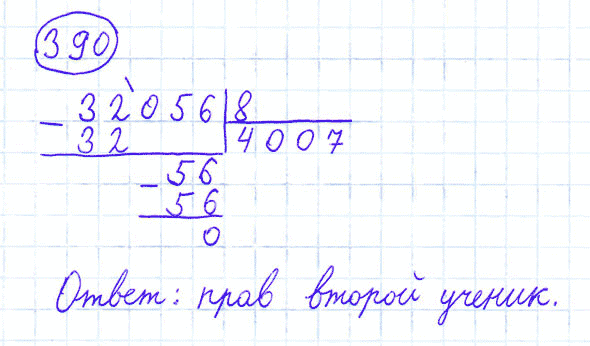 390
- 32'056 | 8
32 | 4007
- 56
56
0
Ответ: прав второй ученик.